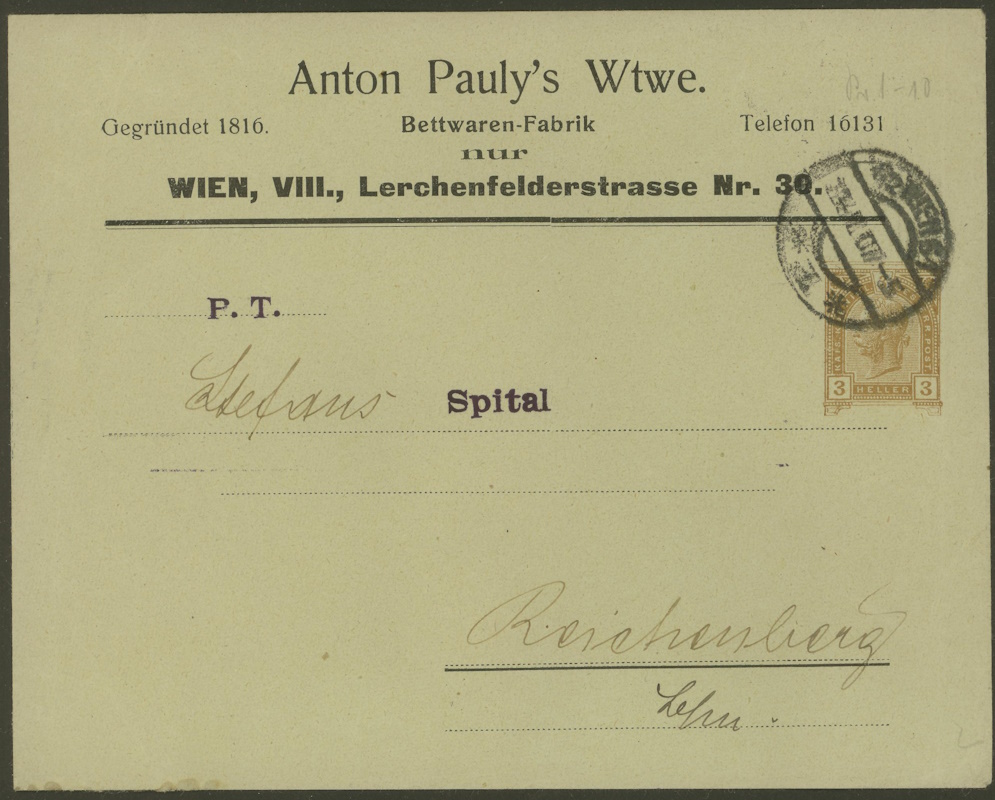 Anton Pauly's Wtwe.
Gegründet 1816. Bettwaren-Fabrik Telefon 16131
nur
WIEN, VIII., Lerchenfelderstrasse Nr. 30.
WIEN
P. T.
3 HELLER 3
Stefans Spital
Reichenberg